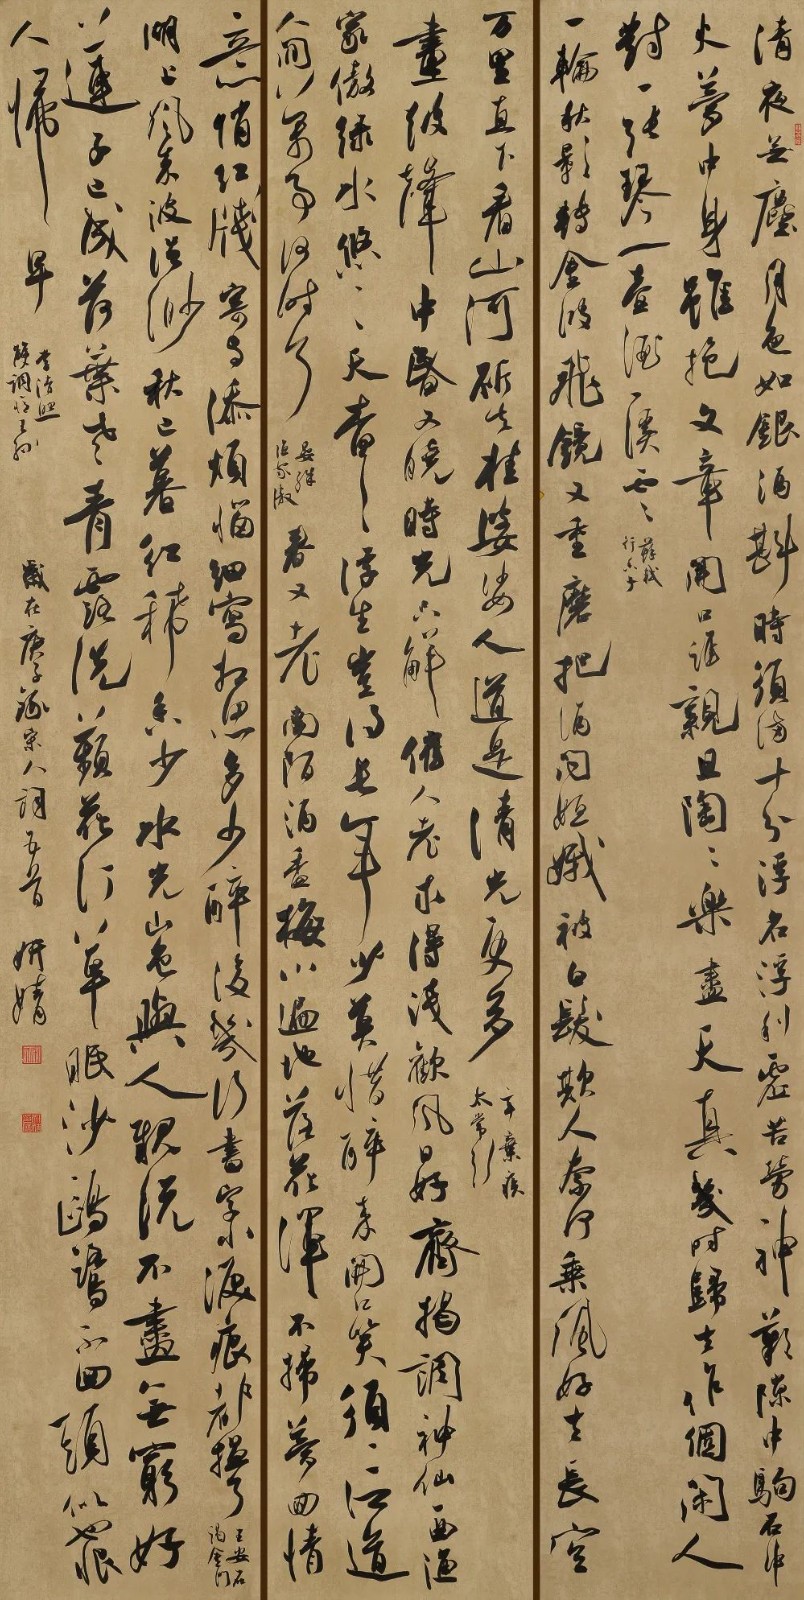 清夜無塵月色如銀酒斟時須滿十分浮名浮利虛苦勞神歎隙中駒石中
火夢中身雖抱文章開口誰親且陶〻樂盡天真幾時歸去作個閒人
對一張琴一壺酒一溪雲
蘇軾
行香子
一輪秋影轉金波飛鏡又重磨把酒問姮娥被白髮欺人奈何乘風好去長空
万里直下看山河斫去桂婆娑人道是清光更多
辛棄疾
太常引
畫鼓聲中昏又曉時光只解催人老求得淺歡風日好齊揭調神仙一曲漁
家傲綠水悠〻天杳〻浮生豈得長年少莫惜醉來開口笑須信道
人間萬事何時了
晏殊
漁家傲
春又老南陌酒香梅小遍地落花渾不掃夢回情
意悄紅牋寄與添煩惱細寫相思多少醉後幾行書字小淚痕都搵了
王安石
謁金門
湖上風來波浩渺秋已暮紅稀香少水光山色與人親說不盡無窮好
蓮子已成荷葉老青露洗蘋花汀草眠沙鷗鷺不回頭似也恨
人歸早
李清照
雙調憶王孫
歲在庚子錄宋人詞五首 妍婧